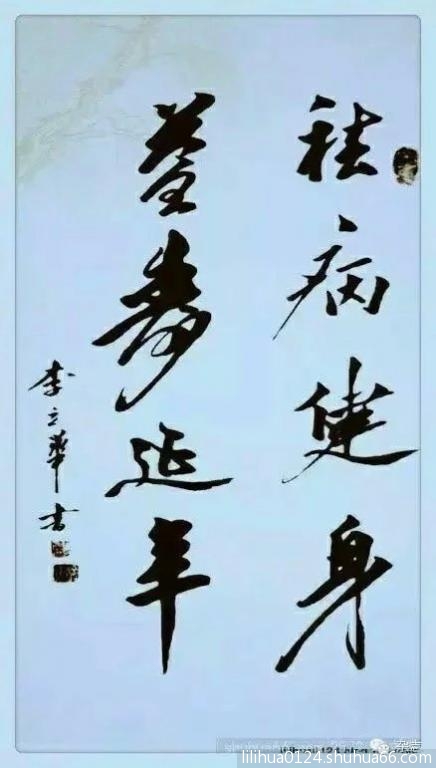 祛病健身
寿延年
李立華书
lilihua0124.shuhua66.com